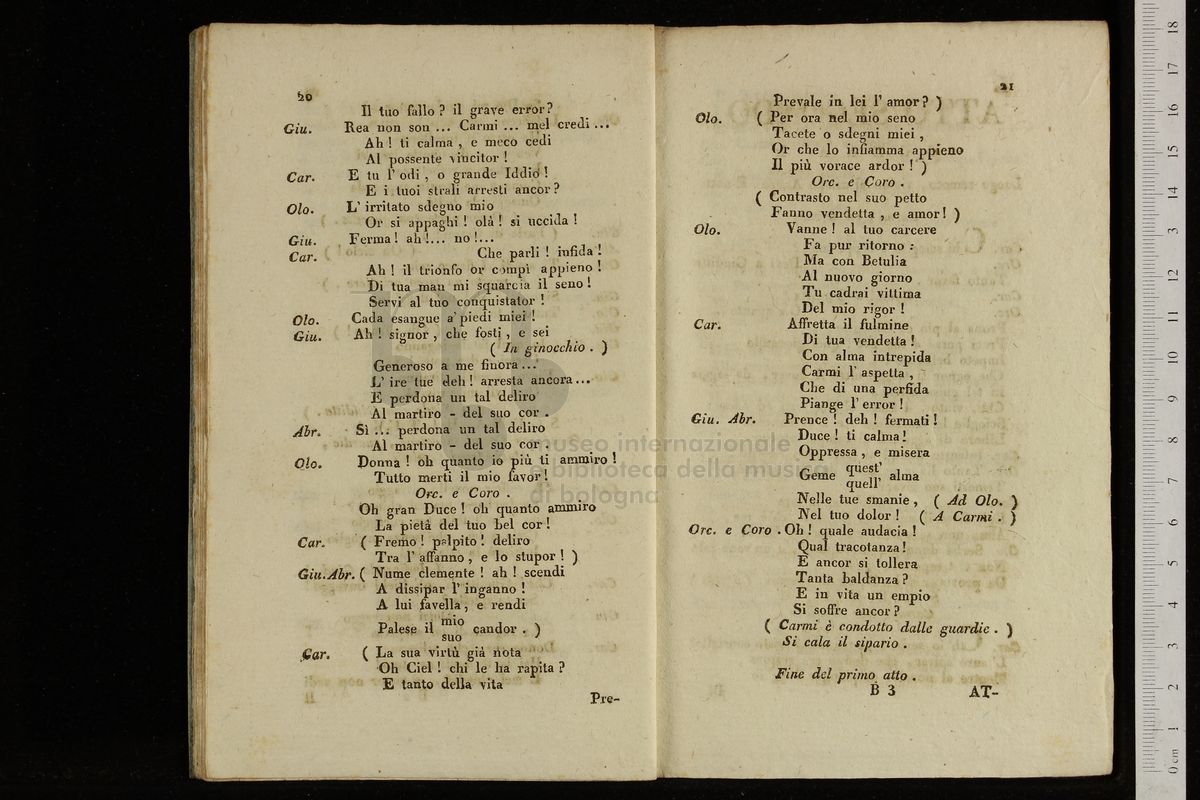 20
Il tuo fallo ? il grave error ?
Giu. Rea non son ... Carmi ... mel credi ...
Ah ! ti calma , e meco cedi
Al possente vincitor !
Car. E tu l' odi , o grande Iddio !
E i tuoi strali arresti ancor ?
Olo. L' irritato sdegno mio
Or si appaghi ! olà ! si uccida !
Giu. Ferma ! ah !... no !...
Car. Che parli ! infida !
Ah ! il trionfo or compi appieno !
Di tua man mi squarcia il seno !
Servi al tuo conquistator !
Olo. Cada esangue a' piedi miei !
Giu. Ah ! signor , che fosti , e sei
( In ginocchio . )
Generoso a me finora ...
L' ire tue deh ! arresta ancora ...
E perdona un tal deliro
Al martiro - del suo cor .
Abr. Sì ... perdona un tal deliro
Al martiro - del suo cor .
Olo. Donna ! oh quanto io più ti ammiro !
Tutto merti il mio favor !
Orc. e Coro .
Oh gran Duce ! oh quanto ammiro
La pietà del tuo bel cor !
Car. ( Fremo ! palpito ! deliro
Tra l' affanno , e lo stupor ! )
Giu. Abr. ( Nume clemente ! ah ! scendi
A dissipar l' inganno !
A lui favella , e rendi
Palese il mio candor . )
suo
Car. ( La sua virtù già nota
Oh Ciel ! chi le ha rapita ?
E tanto della vita
Pre-
21
Prevale in lei l' amor ? )
Olo. ( Per ora nel mio seno
Tacete o sdegni miei ,
Or che lo infiamma appieno
Il più vorace ardor ! )
Orc. e Coro .
( Contrasto nel suo petto
Fanno vendetta , e amor ! )
Olo. Vanne ! al tuo carcere
Fa pur ritorno :
Ma con Betulia
Al nuovo giorno
Tu cadrai vittima
Del mio rigor !
Car. Affretta il fulmine
Di tua vendetta !
Con alma intrepida
Carmi l' aspetta ,
Che di una perfida
Piange l' error !
Giu. Abr. Prence ! deh ! fermati !
Duce ! ti calma !
Oppressa , e misera
Geme quest' alma
quell'
Nelle tue smanie , ( Ad Olo. )
Nel tuo dolor ! ( A Carmi . )
Orc. e Coro . Oh ! quale audacia !
Qual tracotanza !
E ancor si tollera
Tanta baldanza ?
E in vita un empio
Si soffre ancor ?
( Carmi è condotto dalle guardie . )
Si cala il sipario .
Fine del primo atto .
B 3 AT-
museo internazionale
e biblioteca della musica
di bologna
0 cm 1 2 3 4 5 6 7 8 9 10 11 12 13 14 15 16 17 18